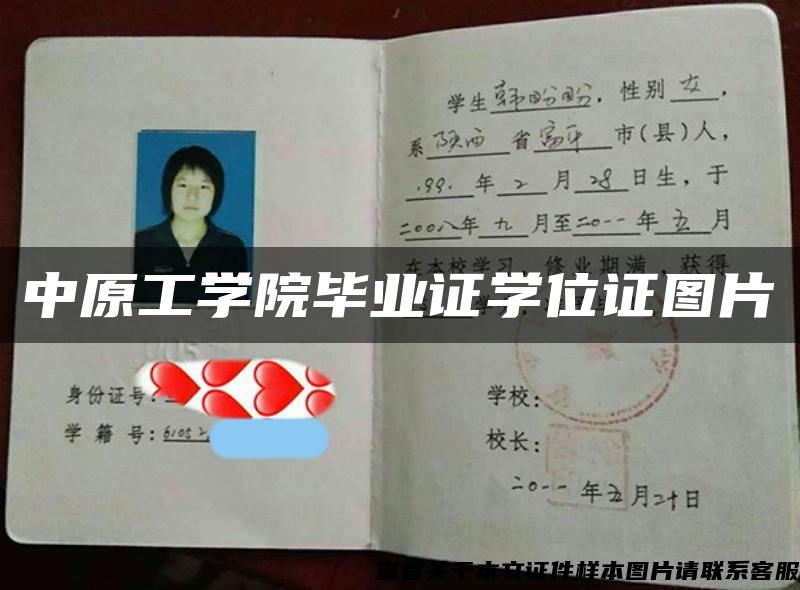 学生韩盼盼，性别女，
系陕西省富平市(县)人，
1991年2月28日生，于
二〇〇八年九月至二〇一一年五月
在本校学习，修业期满，获得
中原工学院毕业证学位证图片
身份证号：
学籍号：61052
学校：
校长：
二〇一一年五月二十日
查看关于本文证件样本图片请联系客服